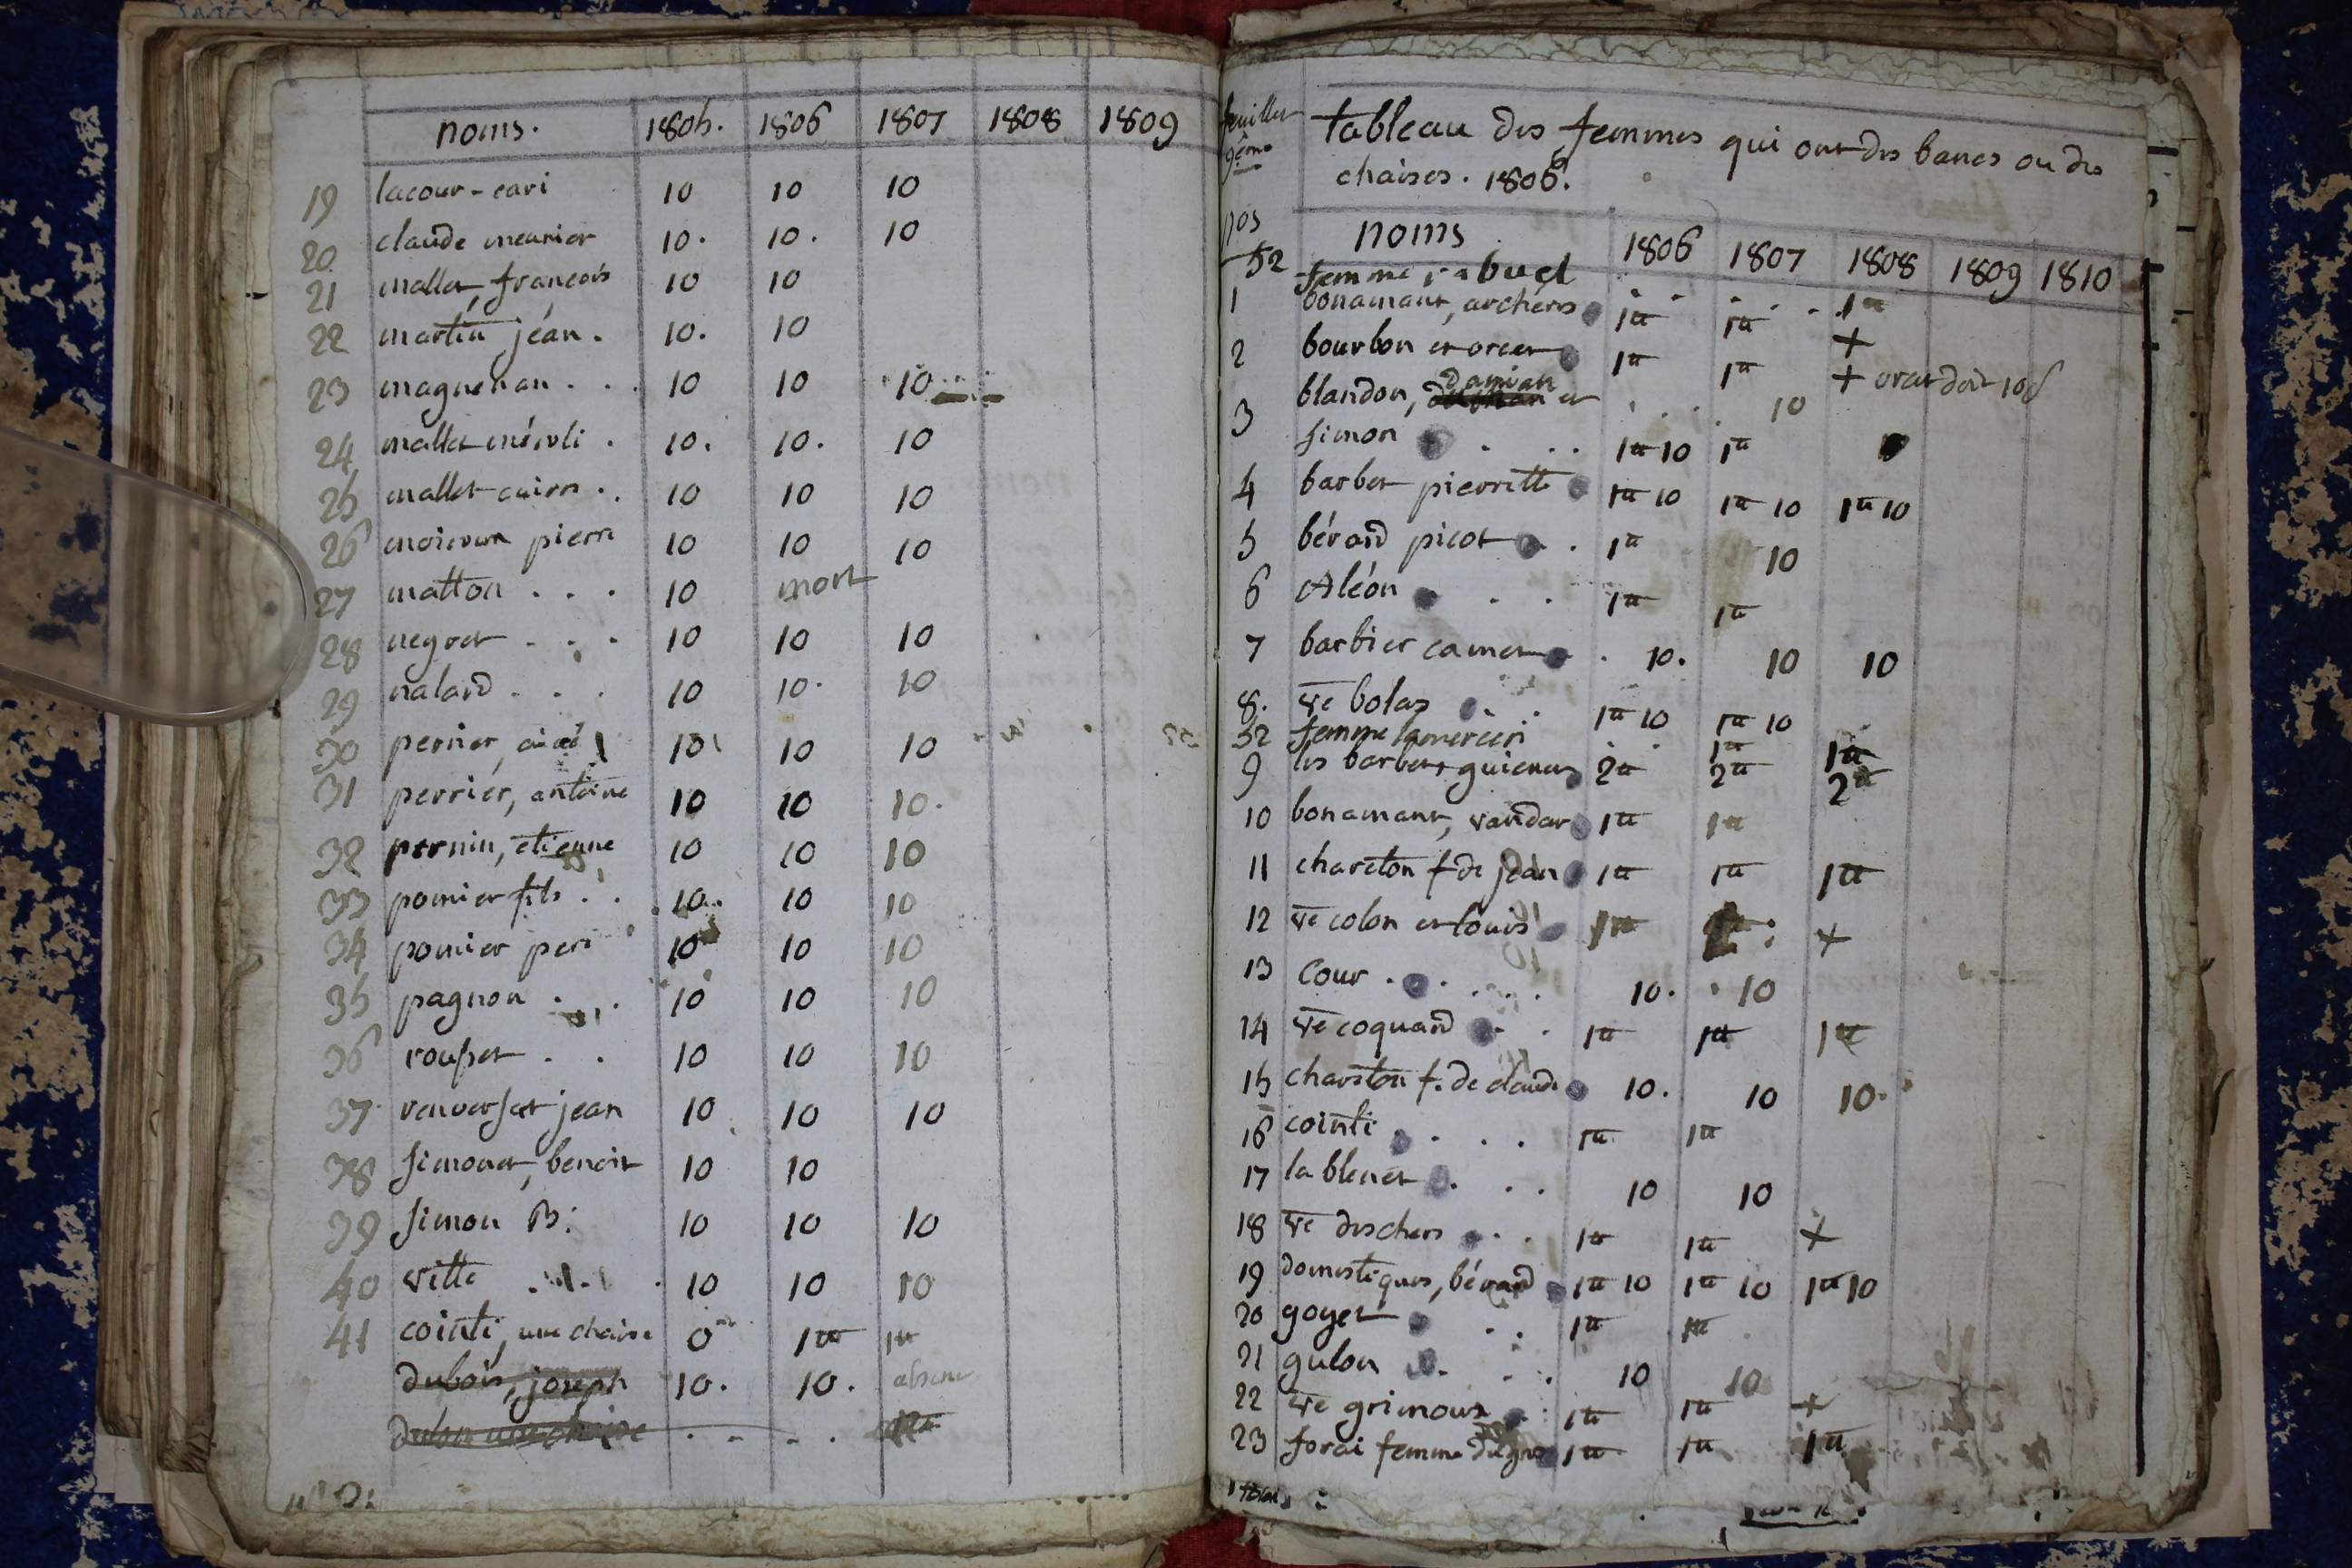 noms. 1805. 1806 1807 1808 1809
19 lacour-cari 10 10 10
20 claude meunier 10. 10. 10
21 mallet, francois 10 10
22 martin jéan. 10. 10
23 magnenan . . . 10 10 10
24 mallet . 10. 10. 10
25 mallet . 10 10 10
26 pierre 10 10 10
27 matton . . . 10 mort
28 negret . . . 10 10 10
29 naland . . . 10 10. 10
30 perrier, 10 10 10
31 perrier, antoine 10 10 10.
32 pernin, etienne 10 10 10
33 pomier fils . . 10. 10 10
34 pomier pere 10 10 10
35 pagnon . . . 10 10 10
36 rousset . . 10 10 10
37 renverset jean 10 10 10
38 simonet, benoit 10 10
39 simon B: 10 10 10
40 vitte 10 10 10
41 cointe, une chaise 0 1tt 1tt
dubois, joseph 10. 10. absent
feuillet
9eme
tableau des femmes qui ont des bancs ou des
chaises. 1806.
nos noms 1806 1807 1808 1809 1810
52 femme buel 1tt
1 bonamant, archers 1tt 1tt +
2 bourbon et 1tt 1tt +
3 blandon, damian et 10
simon . . . 1tt 10 1tt
4 barbet pierrette 1tt 10 1tt 10 1tt 10
5 bérard picot . 1tt 10
6 Aléon . . 1tt 1tt
7 barbier camet . 10. 10 10
8. ve bolas . . 1tt 10 1tt 10
52 femme lamerceri 1tt 1tt
9 les barbet, 2tt 2tt 2tt
10 bonamant, vandar 1tt 1tt
11 chareton f. de jean 1tt 1tt 1tt
12 ve colon et louis 1tt +
13 cour . . . 10. 10
14 ve coquand . . 1tt 1tt 1tt
15 chareton f. de claude 10. 10 10.
16 cointe . . . 1tt 1tt
17 la blenet . . . 10 10
18 ve deschers . . 1tt 1tt +
19 domestiques, bérard 1tt 10 1tt 10 1tt 10
20 goyet . . 1tt 1tt
21 gulon . . . 10 10
22 ve grimoux 1tt 1tt +
23 forai femme 1tt 1tt 1tt